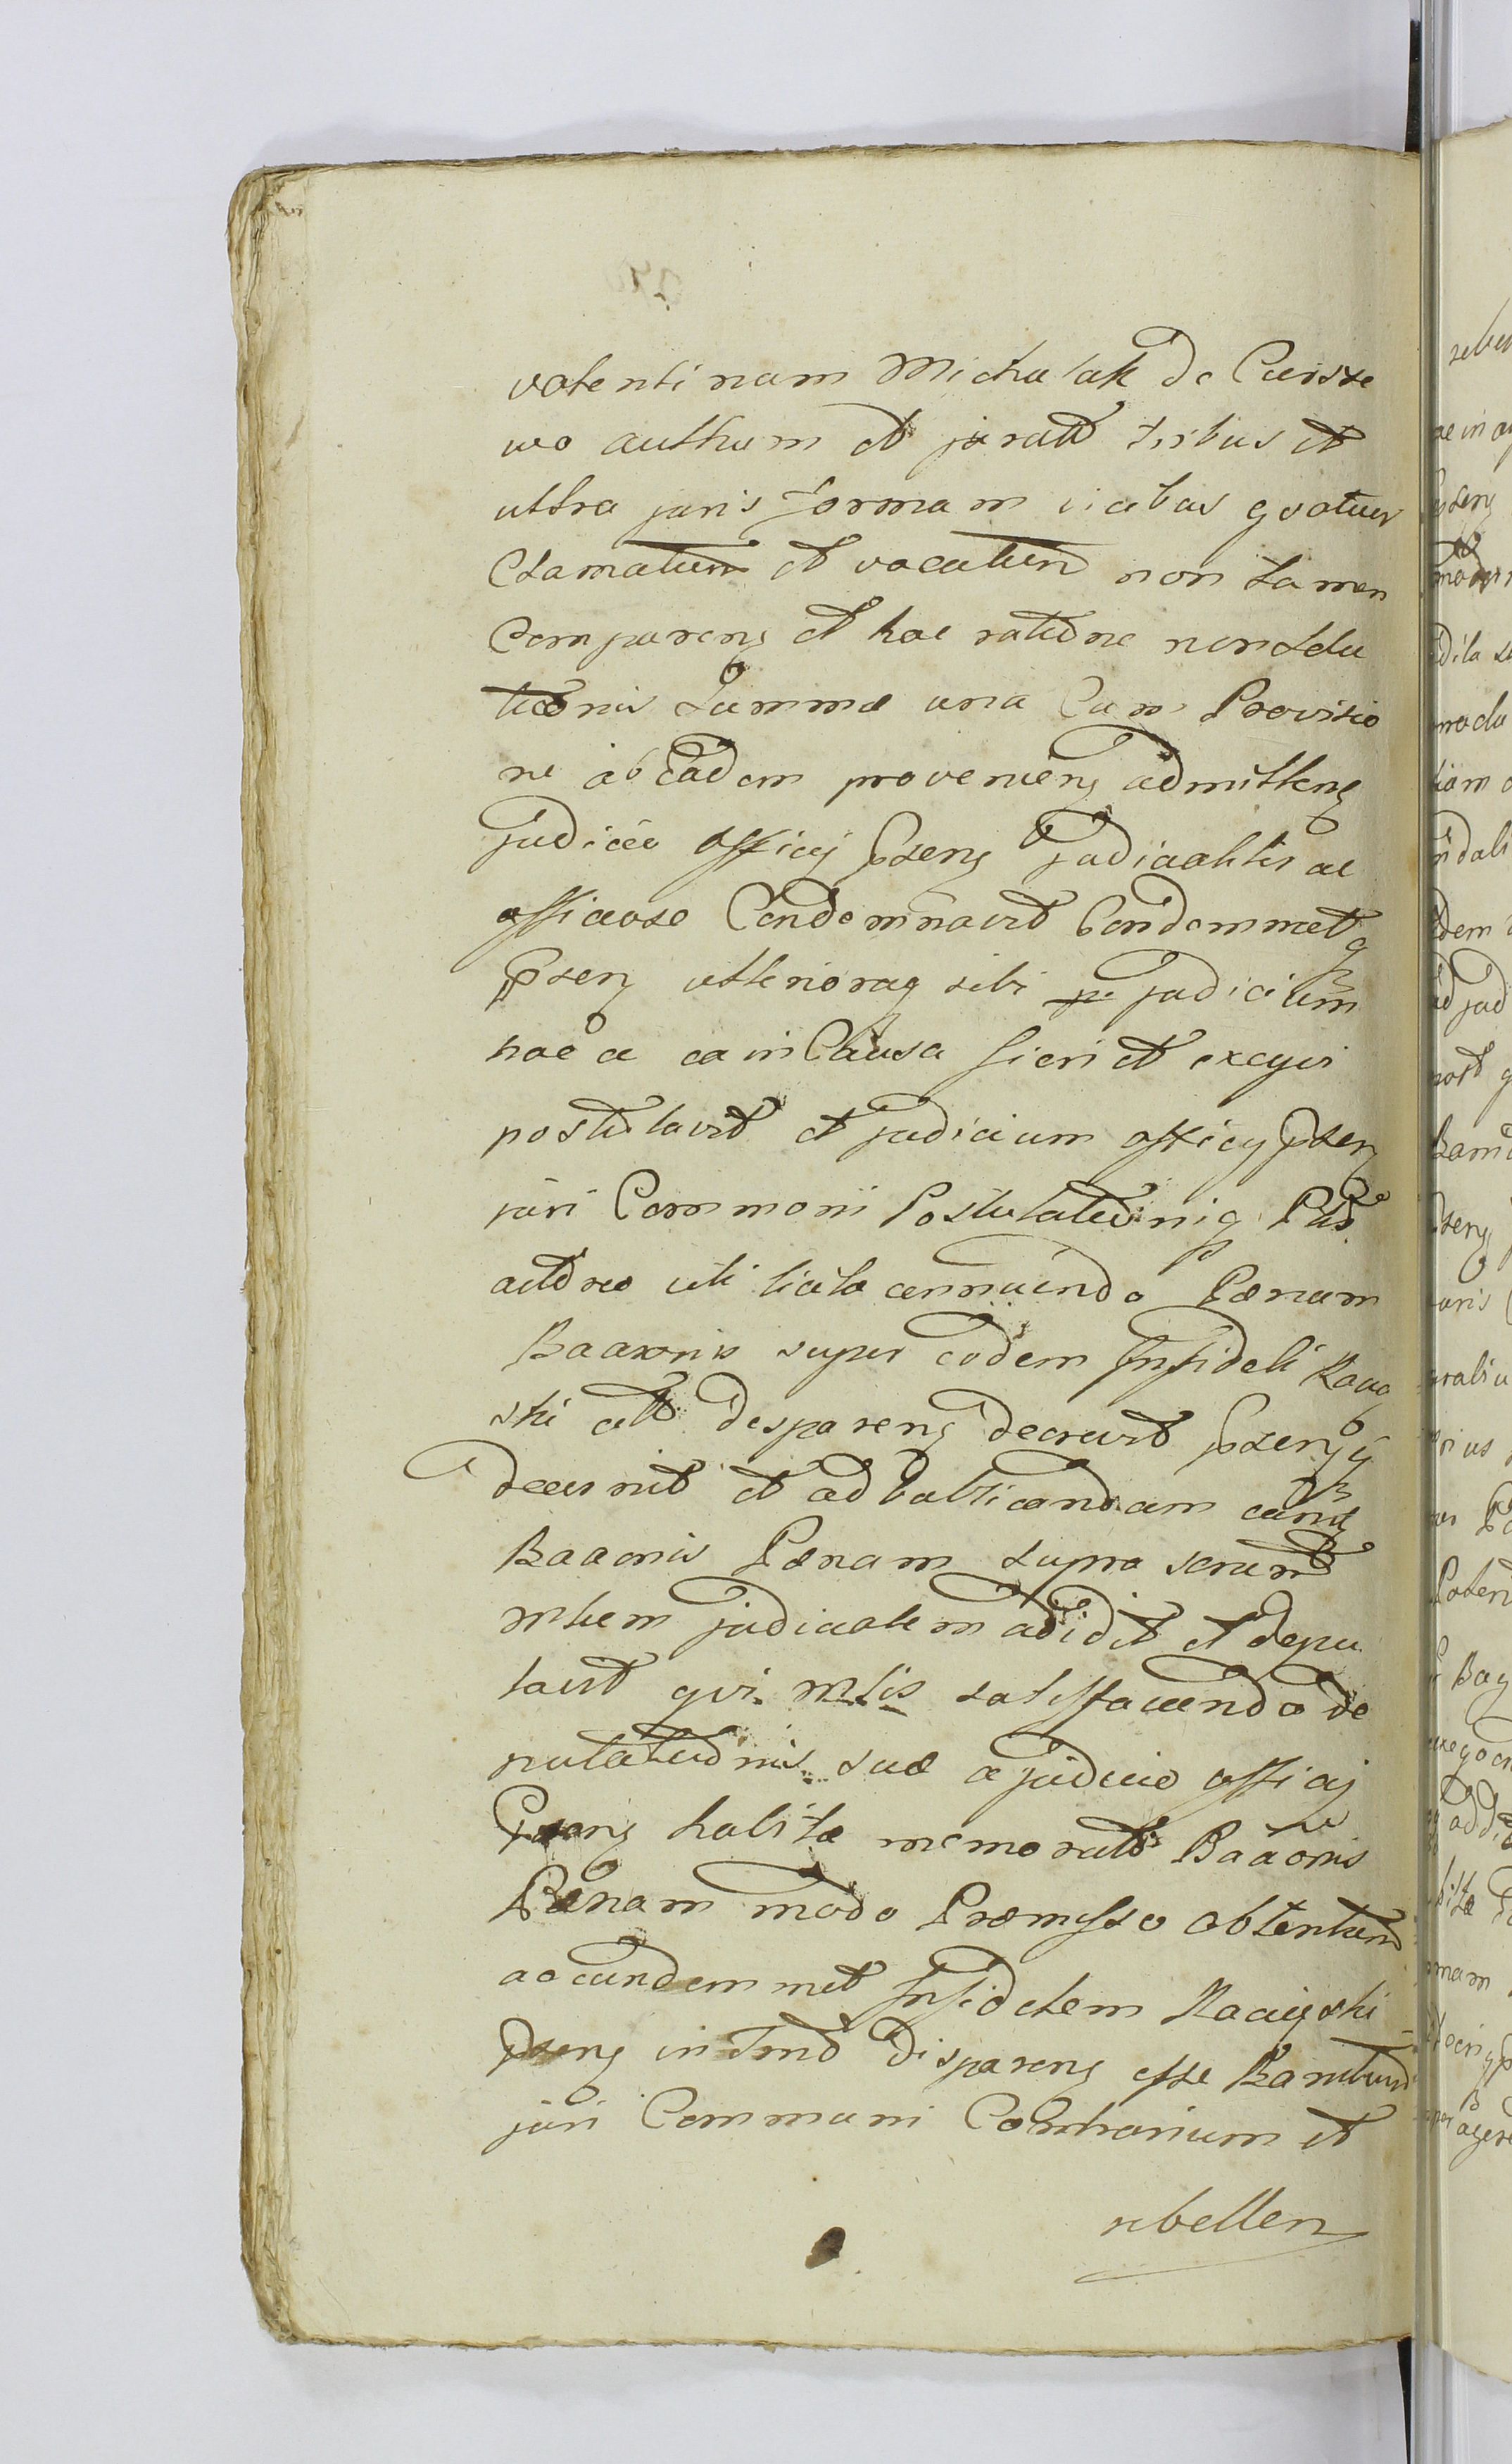 valentinam Michalak de Cuissze
wo authum et juratt tribus et
ultra juris formam vicibus qvatuor
Clamatum et vocatum non tamen
Comparens et hac ratione non solu
tionis Summæ una Cum Provisio
ne ab eadem proveniens admittens
judicio officij Psens judicialiter ac
officiose Condemnavit Condemnatq
Psens ulterioraq sibi p judicium
hac a ea in Causa fieri et exeqvi
postulavit et judicium officij Psens
juri Commoni Postulationiq Pts
actoreo uti licita annuendo Pænam
Baaonis super eodem Infideli Racę
ski att Dispareng Decrevit Psensq
decernit et ad Publicandam eans
Baaonis Pænam supra scrum
mlem judicialem adidit et depu
tavit qvi mlis satisfaciendo de
putationis suæ a judicio officij
Psens habitæ memoratt Baaonis
Pænam modo Præmisso obtentam
ac eundem met Infidelem Racięski
Psens in Tmo Dispareng esse Banitum
juri Communi Contrarium et
rebellen